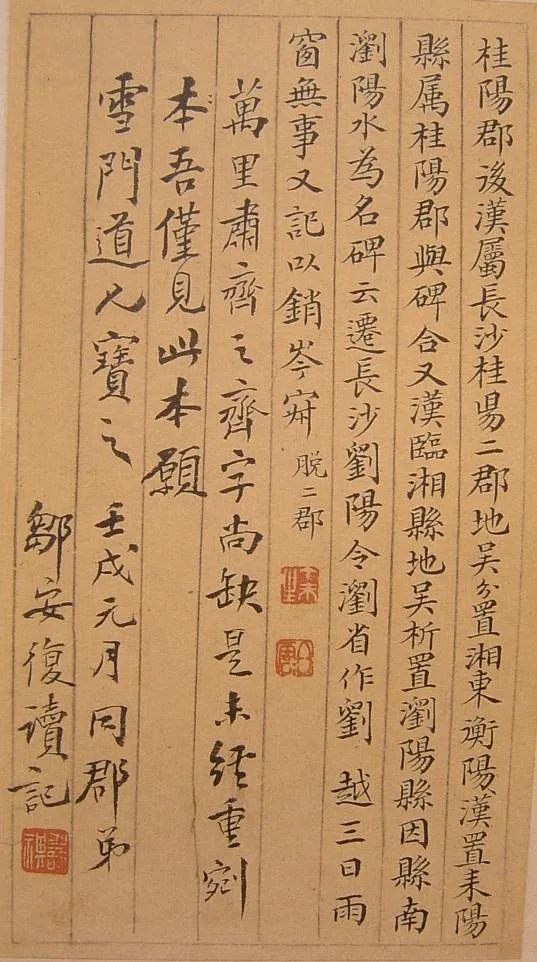 桂陽郡後漢屬長沙桂陽二郡地吳分置湘東衡陽漢置耒陽
縣属桂陽郡與碑合又漢臨湘縣地吳析置瀏陽縣因縣南
瀏陽水為名碑云遷長沙劉陽令瀏省作劉 越三日雨
窗無事又記以銷岑寂 脫二郡
萬里肅齊之齊字尚缺是未經重剜
本吾僅見此本願
雪門道兄寶之 壬戌元月同郡弟
鄒安復讀記